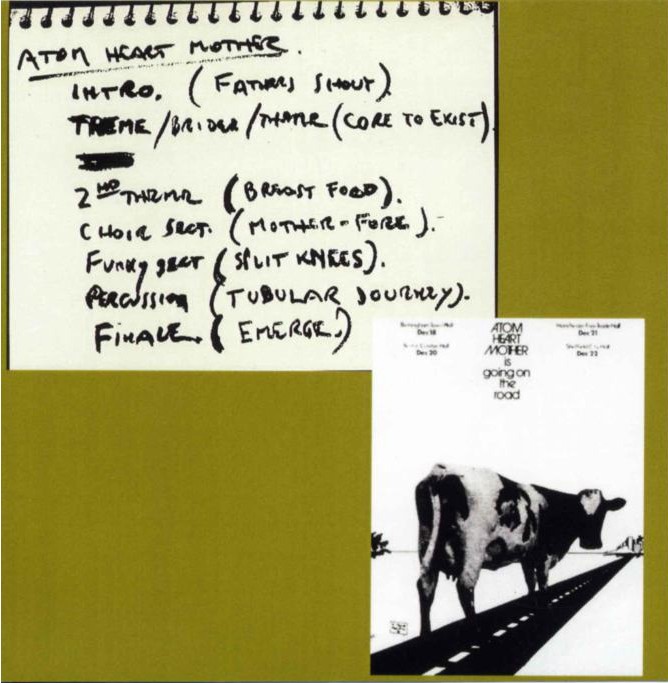 ATOM HEART MOTHER.
INTRO. (FATHERS SHOUT)
THEME/BRIDGE/THEME (CORE TO EXIST).
2ND THEME (BREAST FOOD).
CHOIR SECT. (MOTHER-FORE).
FUNKY SECT (SPLIT KNEES).
PERCUSSION (TUBULAR JOURNEY).
FINALE. (EMERGE.)
Birmingham Town Hall
Dec 18
Dec 20
ATOM
HEART
MOTHER
is
going on
the
road
Manchester Free Trade Hall
Dec 21
Sheffield City Hall
Dec 22